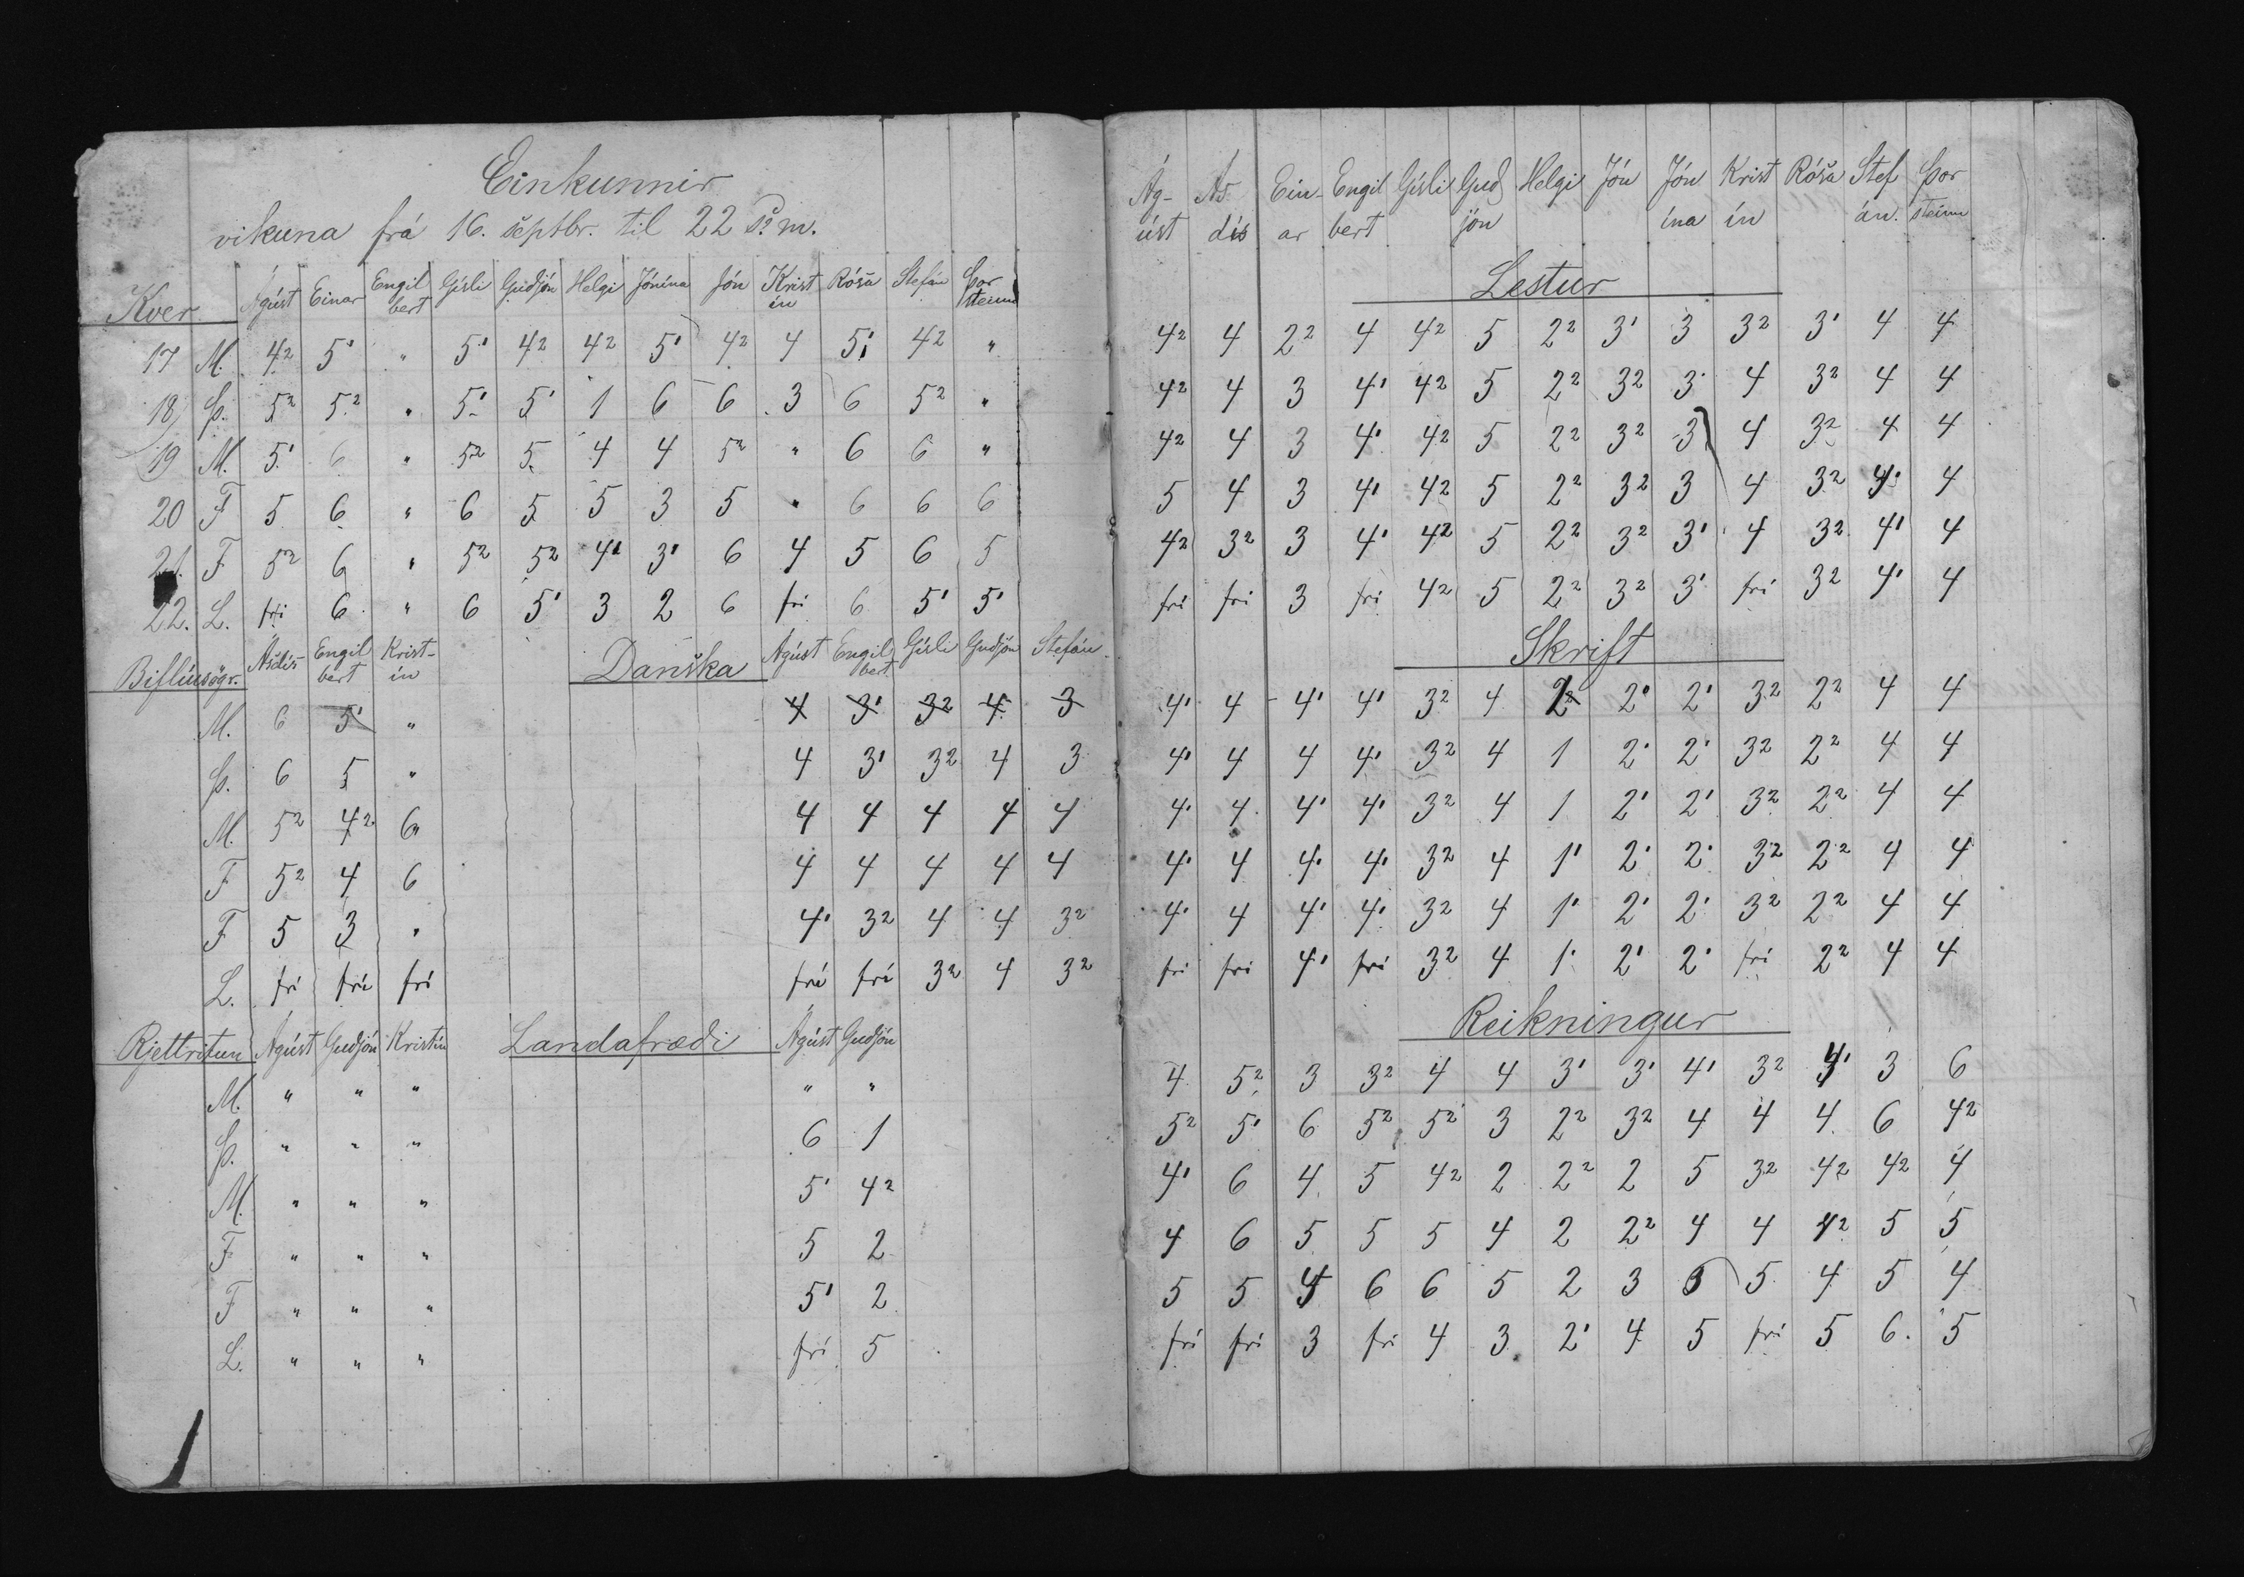 Einkunnir
vikuna frá 16. septbr. til 22 s. m.
Kver Ágúst Einar Engilbert Gísli Guðjón Helgi Jónína Jón Kristín Rósa Stefán Þorsteinn
17 M. 4² 5' " 5' 4² 4² 5' 4² 4 5' 4² "
18 Þ. 5² 5² " 5' 5' 1 6 6 3 6 5² "
19 M. 5' 6 " 5² 5 4 4 5² " 6 6 "
20 F 5 6 " 6 5 5 3 5 " 6 6 6
21. F 5² 6 " 5² 5² 4' 3' 6 4 5 6 5
22. L. frí 6 " 6 5' 3 2 6 frí 6 5' 5'
Biflíusögr. Ásdís Engilbert Kristín Danska Ágúst Engilbert Gísli Guðjón Stefán
M. 6 5' " 4 3' 3² 4 3
Þ. 6 5 " 4 3' 3² 4 3
M. 5² 4² 6 4 4 4 4 4
F 5² 4 6 4 4 4 4 4
F 5 3 " 4' 3² 4 4 3²
L. frí frí frí frí frí 3² 4 3²
Rjettritun Ágúst Guðjón Kristín Landafræði Ágúst Guðjón
M. " " " " "
Þ. " " " 6 1
M. " " " 5' 4²
F " " " 5 2
F " " " 5' 2
L. " " " frí 5
Ágúst Ásdís Einar Engilbert Gísli Guðjón Helgi Jón Jónína Kristín Rósa Stefán. Þorsteinn
Lestur
4² 4 2² 4 4² 5 2² 3' 3 3² 3' 4 4
4² 4 3 4' 4² 5 2² 3² 3' 4 3² 4 4
4² 4 3 4' 4² 5 2² 3² 3 4 3² 4 4
5 4 3 4' 4² 5 2² 3² 3 4 3² 4' 4
4² 3² 3 4' 4² 5 2² 3² 3' 4 3² 4' 4
frí frí 3 frí 4² 5 2² 3² 3' frí 3² 4' 4
Skrift
4' 4 4' 4' 3² 4 2 2' 2' 3² 2² 4 4
4' 4 4 4' 3² 4 1 2' 2' 3² 2² 4 4
4' 4 4' 4' 3² 4 1 2' 2' 3² 2² 4 4
4' 4 4' 4' 3² 4 1' 2' 2' 3² 2² 4 4
4' 4 4' 4' 3² 4 1' 2' 2' 3² 2² 4 4
frí frí 4' frí 3² 4 1' 2' 2' frí 2² 4 4
Reikningur
4 5² 3 3² 4 4 3' 3' 4' 3² 3' 3 6
5² 5' 6 5² 5² 3 2² 3² 4 4 4 6 4²
4' 6 4 5 4² 2 2² 2 5 3² 4² 4² 4
4 6 5 5 5 4 2 2² 4 4 4² 5 5
5 5 4 6 6 5 2 3 5 4 5 4
frí frí 3 frí 4 3 2' 4 5 frí 5 6. 5